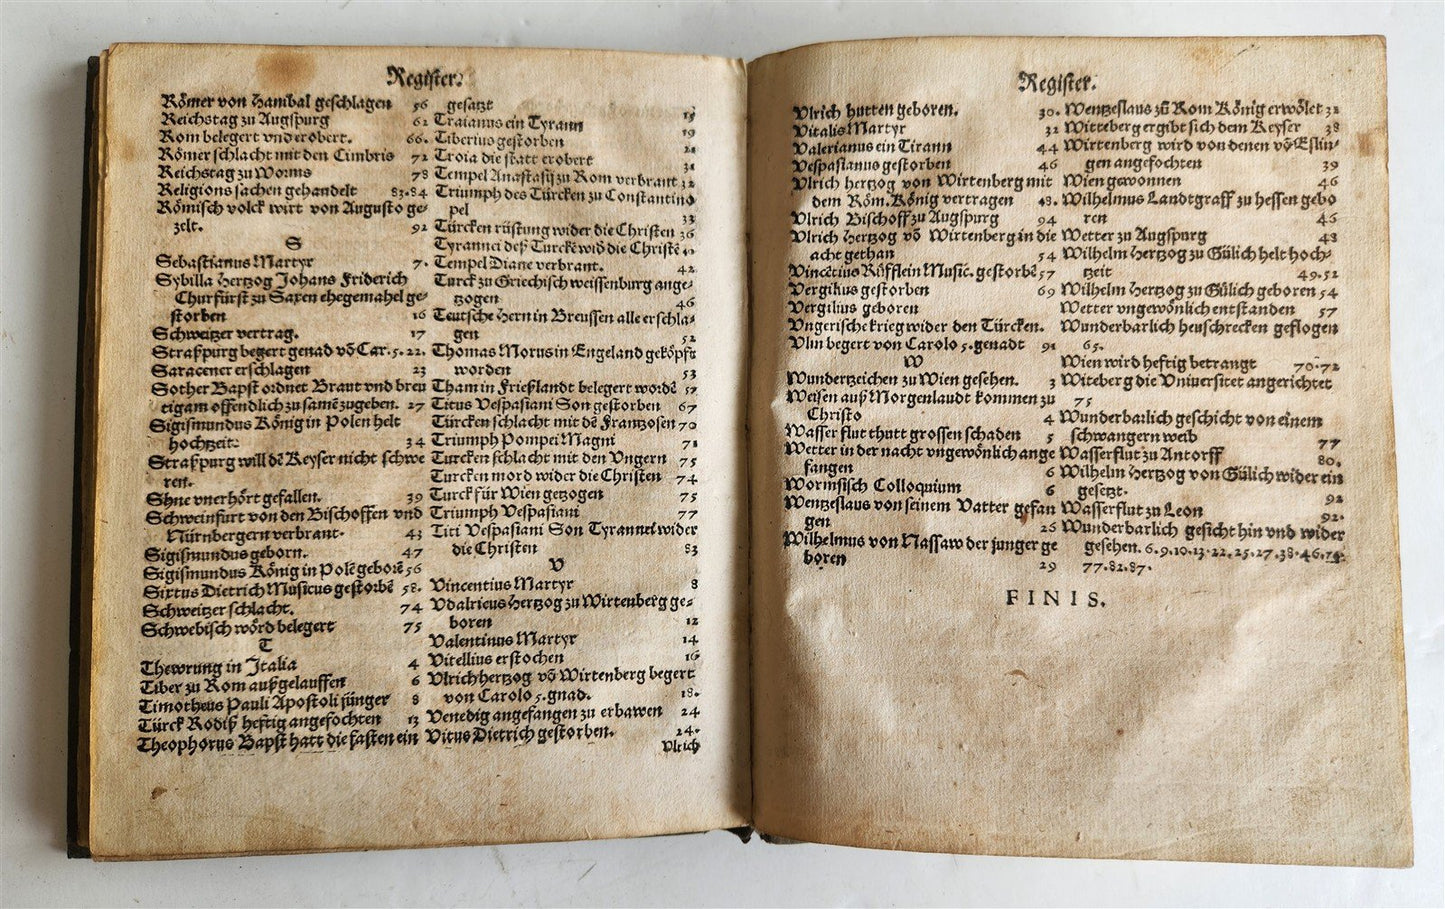 Register.
Römer von Hanibal geschlagen 56
Reichstag zu Augspurg 62
Rom belegert vnd erobert. 66.
Römer schlacht mit den Cimbris 72
Reichstag zu Worms 78
Religions sachen gehandelt 83.84
Römisch volck wirt von Augusto ge-
zelt. 92
S
Sebastianus Martyr 7.
Sybilla Hertzog Johans Friderich
Churfürst zu Saxen ehegemahel ge-
storben 16
Schweitzer vertrag. 17
Straßpurg begert genad vō Car. 5. 22.
Saracener erschlagen 23
Sother Bapst ordnet Braut vnd breu
tigam offendlich zu samē zugeben. 27
Sigismundus König in Polen helt
hochzeit: 34
Straßpurg will dē Keyser nicht schwe
ren.
Shne vnerhört gefallen. 39
Schweinfurt von den Bischoffen vnd
Nürnbergern verbrant. 43
Sigismundus geborn. 47
Sigismundus König in Polē geborē 56
Sixtus Dietrich Musicus gestorbē 58.
Schweitzer schlacht. 74
Schwebisch wörd belegert 75
T
Thewrung in Italia 4
Tiber zu Rom außgelauffen 6
Timotheus Pauli Apostoli jünger 8
Türck Rodiß hefftig angefochten 13
Theophorus Bapst hatt die fasten ein
gesatzt 15
Traianus ein Tyrann 19
Tiberius gestorben 21
Troia die statt erobert 31
Tempel Anastasij zu Rom verbrant 32
Triumph des Türcken zu Constantino
pel 33
Türcken rüstung wider die Christen 36
Tyrannei deß Turckē wid die Christē
Tempel Diane verbrant. 42
Turck zu Griechisch weissenburg ange-
zogen 46
Teutsche Hern in Breussen alle erschla-
gen 52
Thomas Morus in Engeland geköpft
worden 53
Tham in Frießlandt belegert wordē 57
Titus Vespasiani Son gestorben 67
Türcken schlacht mit den Frantzosen 70
Triumph Pompei Magni 71
Turcken schlacht mit den Vngern 75
Turcken mord wider die Christen 74
Turck für Wien gezogen 75
Triumph Vespasiani 77
Titi Vespasiani Son Tyrannei wider
die Christen 83
V
Vincentius Martyr 8
Vdalricus Hertzog zu Wirtenberg ge-
boren 12
Valentinus Martyr 14
Vitellius erstochen 16
Vlrich hertzog vō Wirtenberg begert
von Carolo 5. gnad. 18.
Venedig angefangen zu erbawen 24
Vitus Dietrich gestorben. 24.
Vlrich
Register.
Vlrich hutten geboren. 30.
Vitalis Martyr 32
Valerianus ein Tirann 44
Vespasianus gestorben 46
Vlrich hertzog von Wirtenberg mit
dem Röm. König vertragen 48.
Vlrich Bischoff zu Augspurg 94
Vlrich Hertzog vō Wirtenberg in die
acht gethan 54
Vincētius Rüfflein Music. gestorbē 57
Vergilius gestorben 69
Vergilius geboren
Vngerische krieg wider den Türcken.
Vlm begert von Carolo 5. genadt 91
W
Wunderzeichen zu Wien gesehen. 3
Weisen auß Morgenlandt kommen zu
Christo 4
Wasser flut thutt grossen schaden 5
Wetter in der nacht vngewönlich ange
fangen 6
Wormsisch Colloquium 6
Wentzeslaus von seinem Vatter gefan
gen 26
Wilhelmus von Nassaw der junger ge
boren 29
Wentzeslaus zů Rom König erwölet 32
Witteberg ergibt sich dem Keyser 38
Wirtenberg wird von denen vō Eslin-
gen angefochten 39
Wien gewonnen 46
Wilhelmus Landtgraff zu Hessen gebo
ren 46
Wetter zu Augspurg 48
Wilhelm Hertzog zu Gülich helt hoch-
zeit 49.52
Wilhelm Hertzog zu Gülich geboren 54
Wetter vngewönlich entstanden 57
Wunderbarlich heuschrecken geflogen
65.
Wien wird heftig betrangt 70.72
Witeberg die Vniuersitet angerichtet
75
Wunderbarlich geschicht von einem
schwangern weib 77
Wasserflut zu Antorff 80.
Wilhelm Hertzog von Gülich wider ein
gesetzt. 92
Wasserflut zu Leon 92.
Wunderbarlich gesicht hin vnd wider
gesehen. 6.9.10.13.22.25.27.38.46.74.
77.82.87.
FINIS.